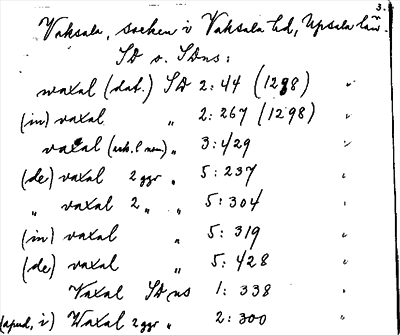 3.
Vaksala, socken i Vaksala hd, Upsala län.
SD o. SDns:
waxal (dat.) SD 2:44 (1288) "
(in) vaxal " 2:267 (1298) "
vaxal (ack. l nom) " 3:429 "
(de) vaxal 2 ggr " 5:237 "
" vaxal 2 " " 5:304 "
(in) vaxal " 5:319 "
(de) vaxal " 5:428 "
Vaxal SD ns 1:338 "
(apud, i) Waxal 2 ggr " 2:300 "